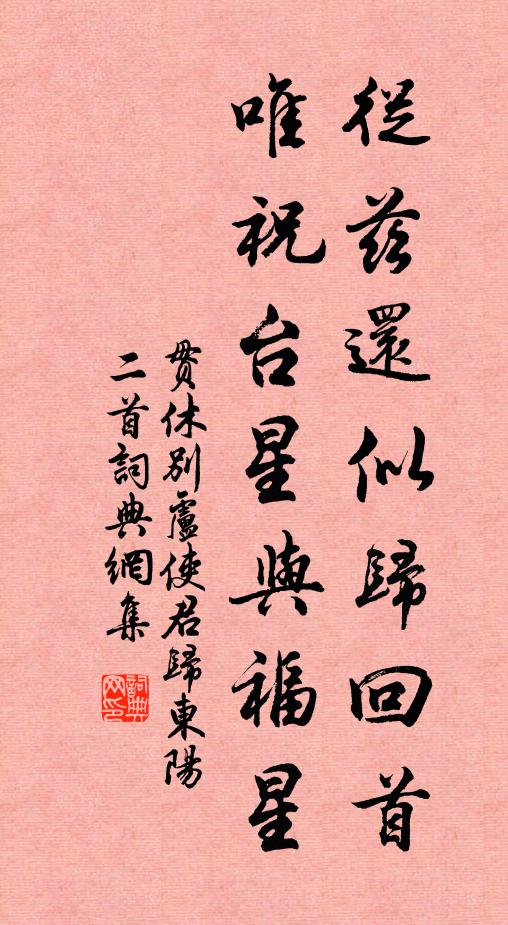 從茲還似歸回首
唯祝台星與福星
貫休別盧使君歸東陽
二首詞典網集
詞典網印